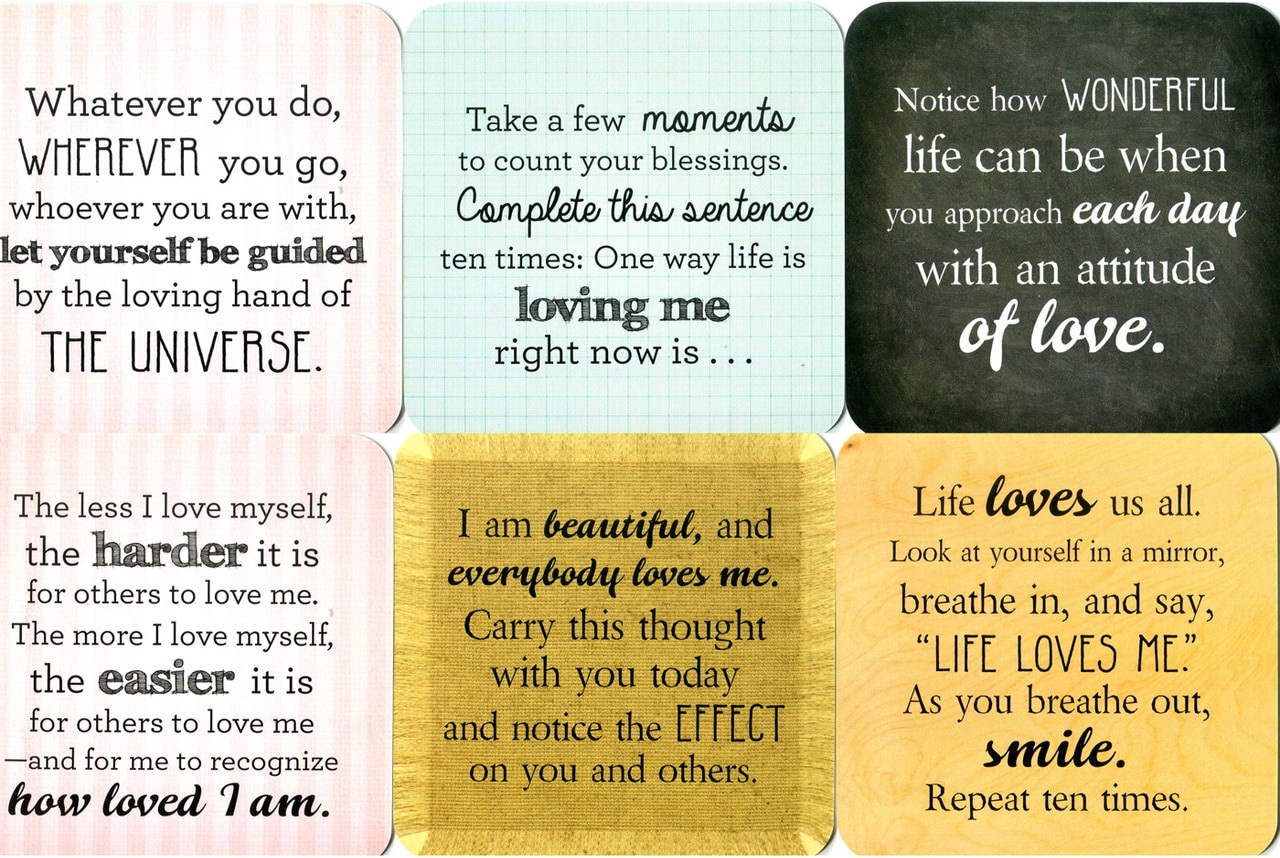 Whatever you do,
WHEREVER you go,
whoever you are with,
let yourself be guided
by the loving hand of
THE UNIVERSE.
Take a few moments
to count your blessings.
Complete this sentence
ten times: One way life is
loving me
right now is . . .
Notice how WONDERFUL
life can be when
you approach each day
with an attitude
of love.
The less I love myself,
the harder it is
for others to love me.
The more I love myself,
the easier it is
for others to love me
—and for me to recognize
how loved I am.
I am beautiful, and
everybody loves me.
Carry this thought
with you today
and notice the EFFECT
on you and others.
Life loves us all.
Look at yourself in a mirror,
breathe in, and say,
“LIFE LOVES ME.”
As you breathe out,
smile.
Repeat ten times.